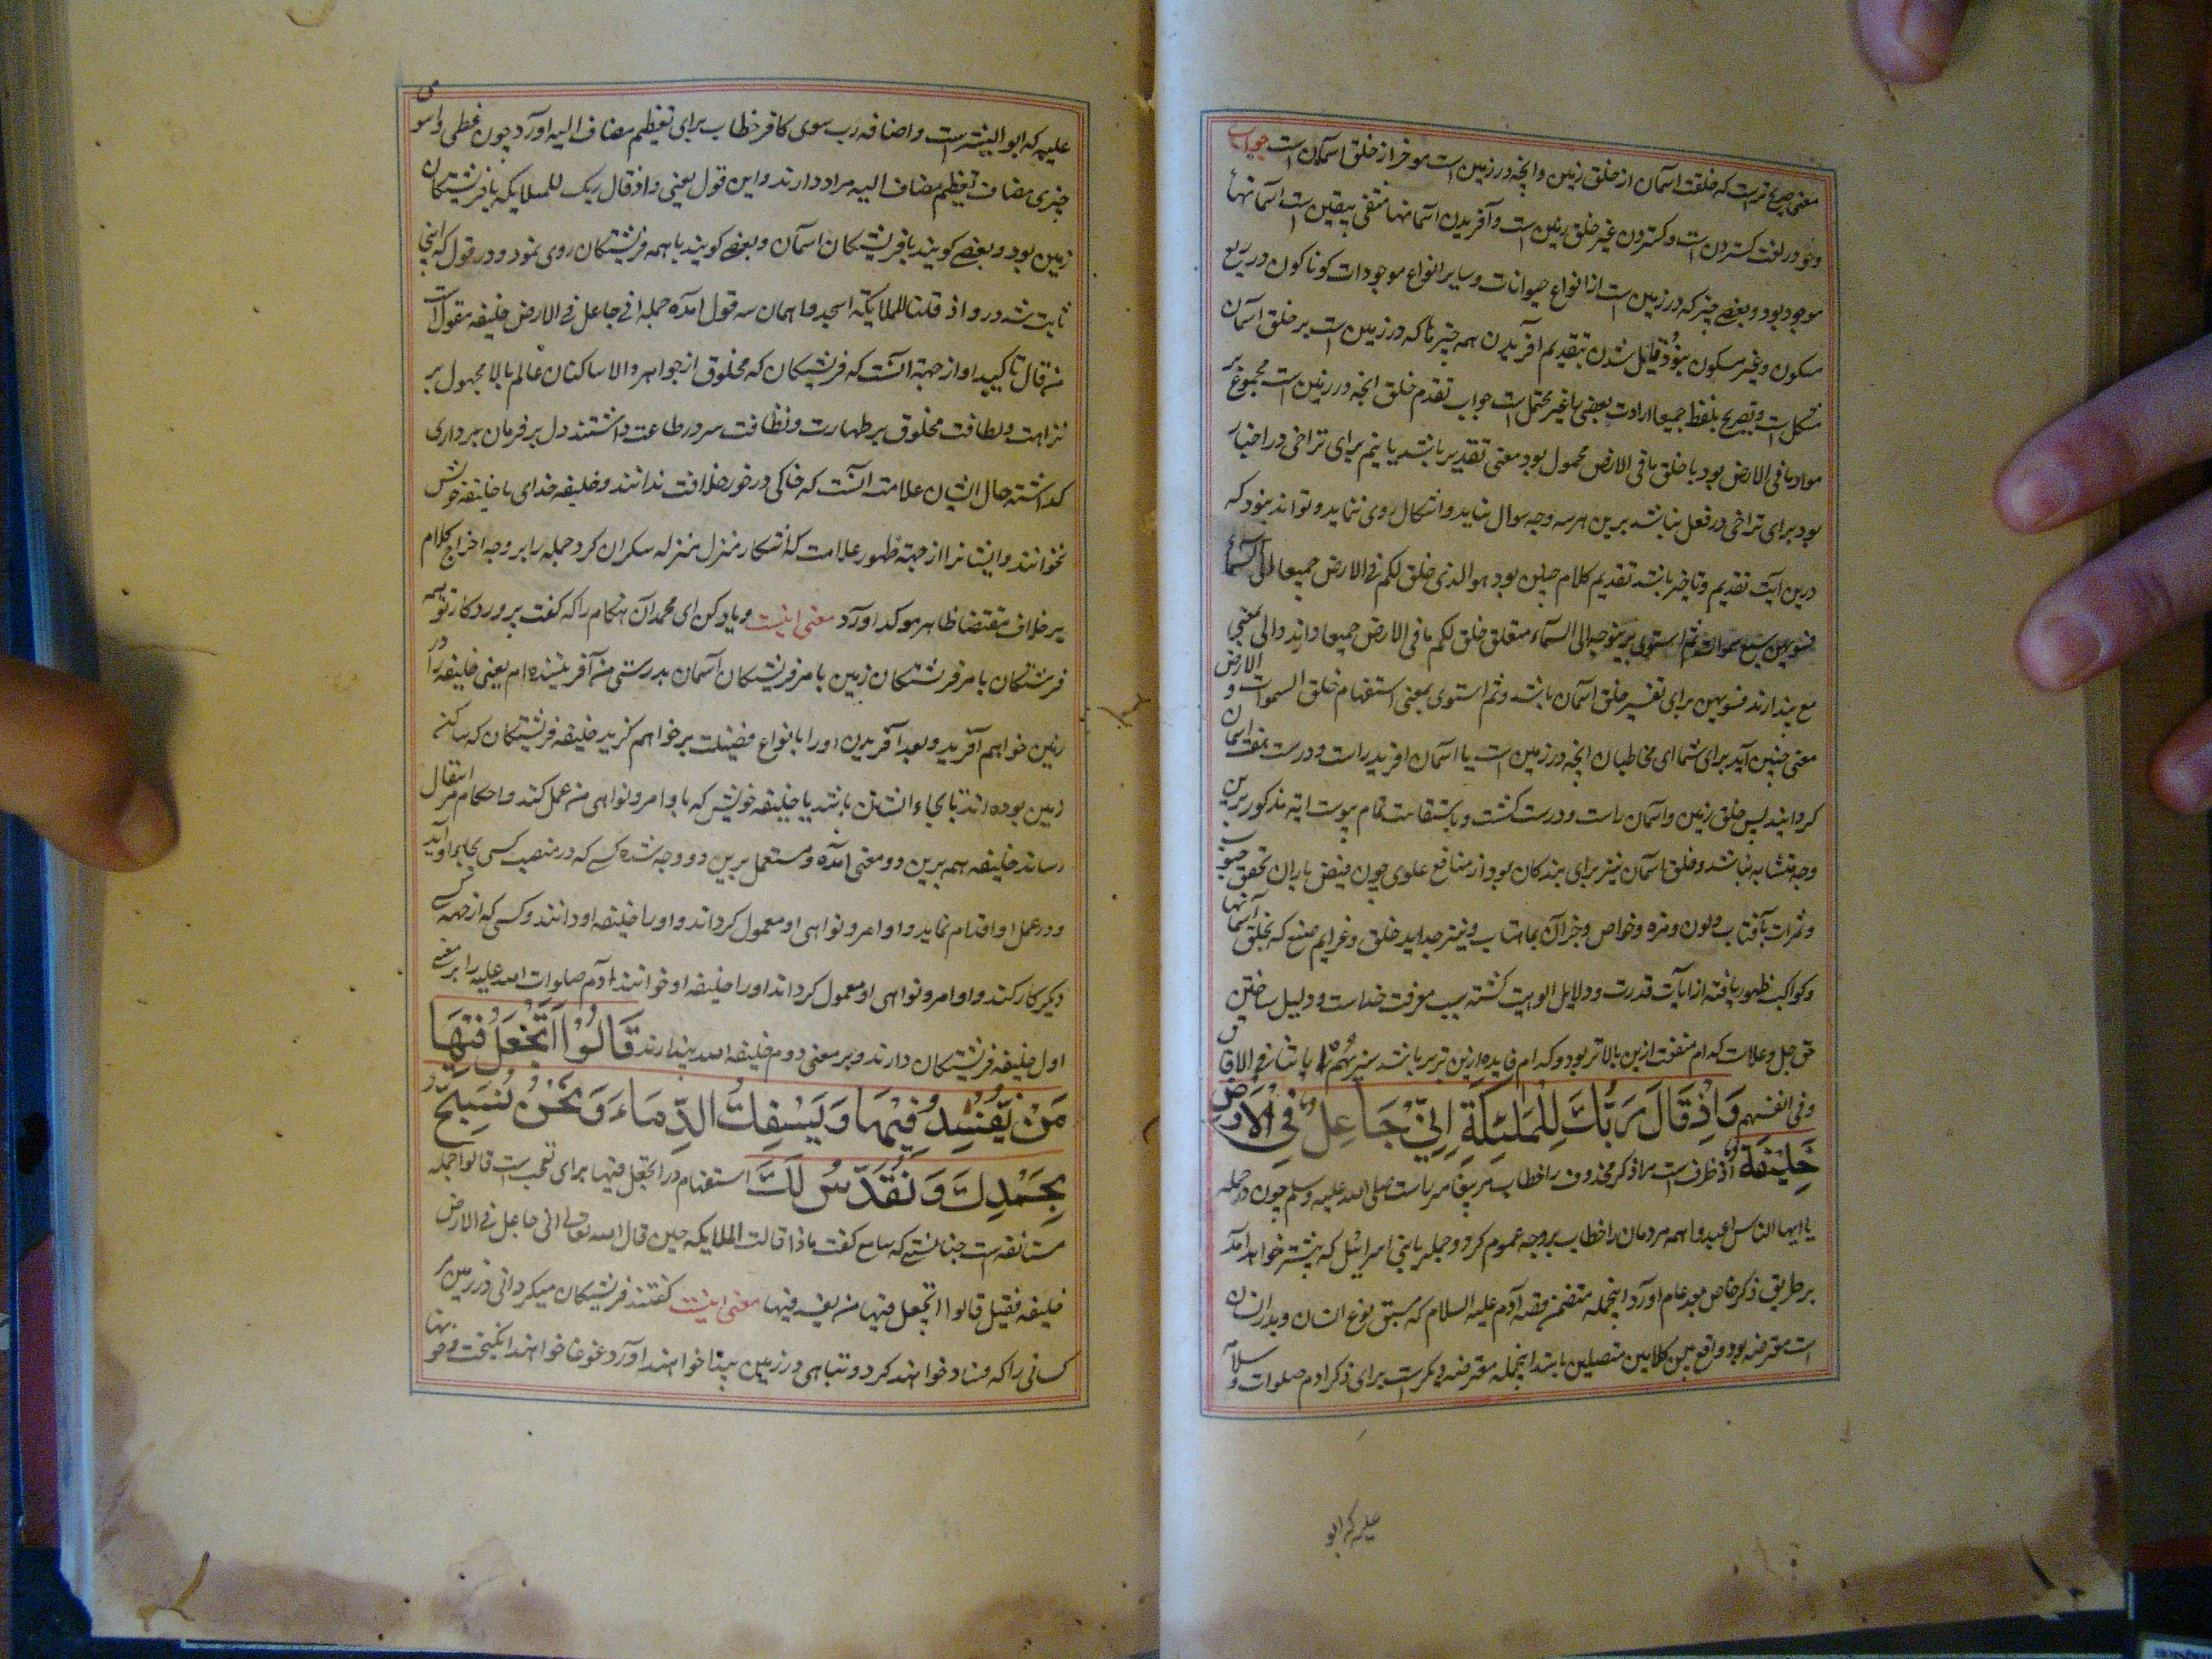 معنی صریح ترست که خلقت آسمان از خلق زمین وانچه در زمین است موخر از خلق آسمان است جواب
دحو در لغت کستردن است وکستردن غیر خلق زمین است وآفریدن اسمانها منتفی بیقین است اسمانها
موجود بود وبعضے چیز که در زمین است از انواع حیوانات وسایر انواع موجودات کوناکون در ربع
مسکون وغیر مسکون نبود قایل شدن بتقدیم آفریدن همه چیزها که در زمین است بر خلق آسمان
مشکل است وتصریح بلفظ جمیعا ارادت بعضی را غیر محتمل است جواب تقدم خلق انچه در زمین است مجموع بر
مواد ما فی الارض بود یا خلق ما فی الارض محمول بود معنی تقدیر باشد یا ثم برای تراخی در اخبار
بود برای تراخی در فعل نباشد برین هرسه وجه سوال نیاید واشکال روی ننماید وتواند بود که
درین آیت تقدیم وتاخیر باشد تقدیم کلام چنین بود هو الذی خلق لکم ما فی الارض جمیعا الی السماء
فسویهن سبع سموات ثم استوی الی السماء متعلق خلق لکم ما فی الارض جمیعا دانند والی بمعنی
مع پندارند فسویهن برای تفسیر خلق آسمان باشد وثم استوی بمعنی استفهام خلق السموات و الارض
معنی چنین آید برای شما ای مخاطبان انچه در زمین است با اسمان افرید راست ودرست هفت اسمان
کردانید پس خلق زمین واسمان راست ودرست کشت وباستقامت تمام پیوست ایه مذکور برین
وجه متشابه نباشد وخلق اسمان نیز برای بندکان بود از منافع علوی چون فیض باران تحقق حبوب
وثمرات بآفتاب ولون ومزه وخواص وجزآن بماهتاب ونیز بدایع خلق وغرایم صنع که بخلق آسمانها
وکواکب ظهور یافته از ایات قدرت ودلایل الوهیت کشته سبب معرفت خداست ودلیل ساختن
حق جل وعلاست کدام منفعت ازین بالاتر بود وکدام فایده ازین برتر باشد سنریهم ایاتنا فی الافاق
وفی انفسهم وَاِذْ قَالَ رَبُّكَ لِلْمَلٰٓئِكَةِ اِنِّیْ جَاعِلٌ فِی الْاَرْضِ
خَلِیْفَةً اذ ظرف است مراذکر محذوف را خطاب مر پیغامبر راست صلی الله علیه وسلم چون در جمله
یا ایها الناس اعبدوا همه مردمان را خطاب بر وجه عموم کرد وجمله یا بنی اسرائیل که پیشتر خواهد آمد
بر طریق ذکر خاص بعد عام آورد اینجمله متضمن قصه آدم علیه السلام که سبق نوع انسان وپدر ایشان
است معترضه بود واقع بین کلامین متصلین باشد اینجمله معترضه دیکرست برای ذکر ادم صلوات و سلام
علیه که ابو
علیه که ابو البشر است واضافه رب سوی کافر خطاب برای تعظیم مضاف الیه آورد چون عظمی را سوی
چیزی مضاف تعظیم مضاف الیه مراد دارند واین قول یعنی واذ قال ربک للملایکه با فریشتکان
زمین بود وبعضے کویند با فریشتکان اسمان وبعضے کویند با همه فرشتکان روی نمود ودر قول که اینجا
ثابت شد در واذ قلنا للملایکة اسجدوا همان سه قول آمده جمله انی جاعل فی الارض خلیفه مقول است
مر قال تاکید او از جهة آنست که فرشیکان که مخلوق از جواهر والا ساکنان عالم بالا مجبول بر
نزاهت ولطافت مخلوق بر طهارت ونظافت سر در طاعت داشتند دل بر فرمان برداری
کداشته حال ایشان علامت آنست که خاکی در خور خلافت ندانند وخلیفه خدای یا خلیفه خویش
نخوانند وایشانرا از جهة ظهور علامت که انکار منزل بمنزله منکران کرد جمله را بر وجه اخراج کلام
بر خلاف مقتضا ظاهر موکد آورد معنی اینست ویاد کن ای محمد آن هنکام را که کفت پروردکار تو همه
فرشتکان یا مر فرشتکان زمین یا مر فریشتکان آسمان بدرستی من آفریننده ام یعنی خلیفه را در
زمین خواهم آفرید وبعد آفریدن اورا بانواع فضیلت بر خواهم کزید خلیفه فرشتکان که ساکن
زمین بوده اند تا بجاء ایشان باشد یا خلیفه خویش که باوامر ونواهی من عمل کند واحکام مر انتقال
رساند خلیفه هم برین دو معنی آمده ومستعمل برین دو وجه شده کسے که در منصب کسی بجای او آید
ودر عمل او اقدام نماید واوامر ونواهی او معمول کرداند و اورا خلیفه او دانند وکسی که از جهه کسے
دیکر کار کند واوامر ونواهی او معمول کرداند اورا خلیفه او خوانند آدم صلوات الله علیه را بر معنے
اول خلیفه فرشتکان دارند وبر معنی دوم خلیفه الله پندارند قَالُوْٓا اَتَجْعَلُ فِیْهَا
مَنْ یُّفْسِدُ فِیْهَا وَیَسْفِكُ الدِّمَآءَ وَنَحْنُ نُسَبِّحُ
بِحَمْدِكَ وَنُقَدِّسُ لَكَ استفهام در اتجعل فیها برای تعجب است قالوا جمله
مستانفه است چنانستے که سامع کفت ماذا قالت الملایکه حین قال الله تعالی انی جاعل فی الارض
خلیفه فقیل قالوا اتجعل فیها من یفسد فیها معنی اینست کفتند فرشیکان میکردانی در زمین مر
کسانی را که فساد خواهند کرد وتباهی در زمین پیدا خواهند آورد غوغا خواهند انکیخت و خونها